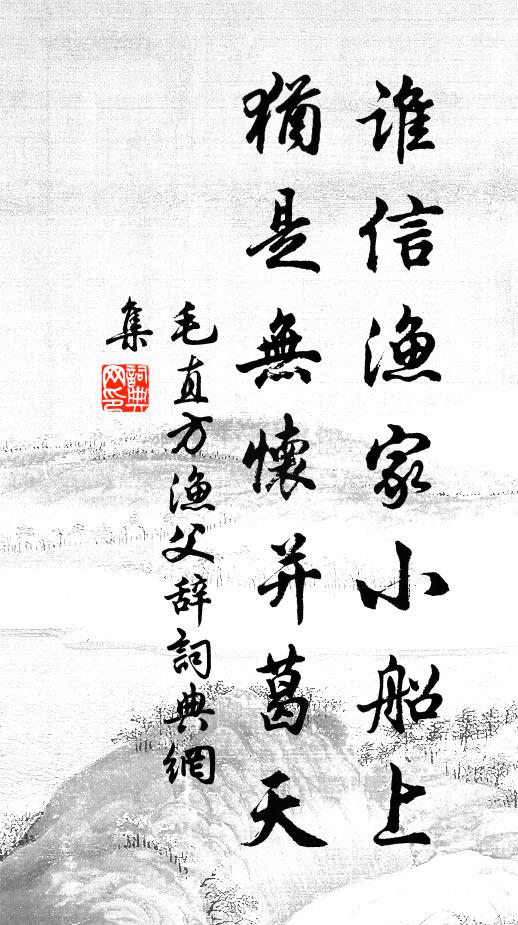 誰信漁家小船上
猶是無懷并葛天
毛直方漁父辞詞典網
集
詞典
网印